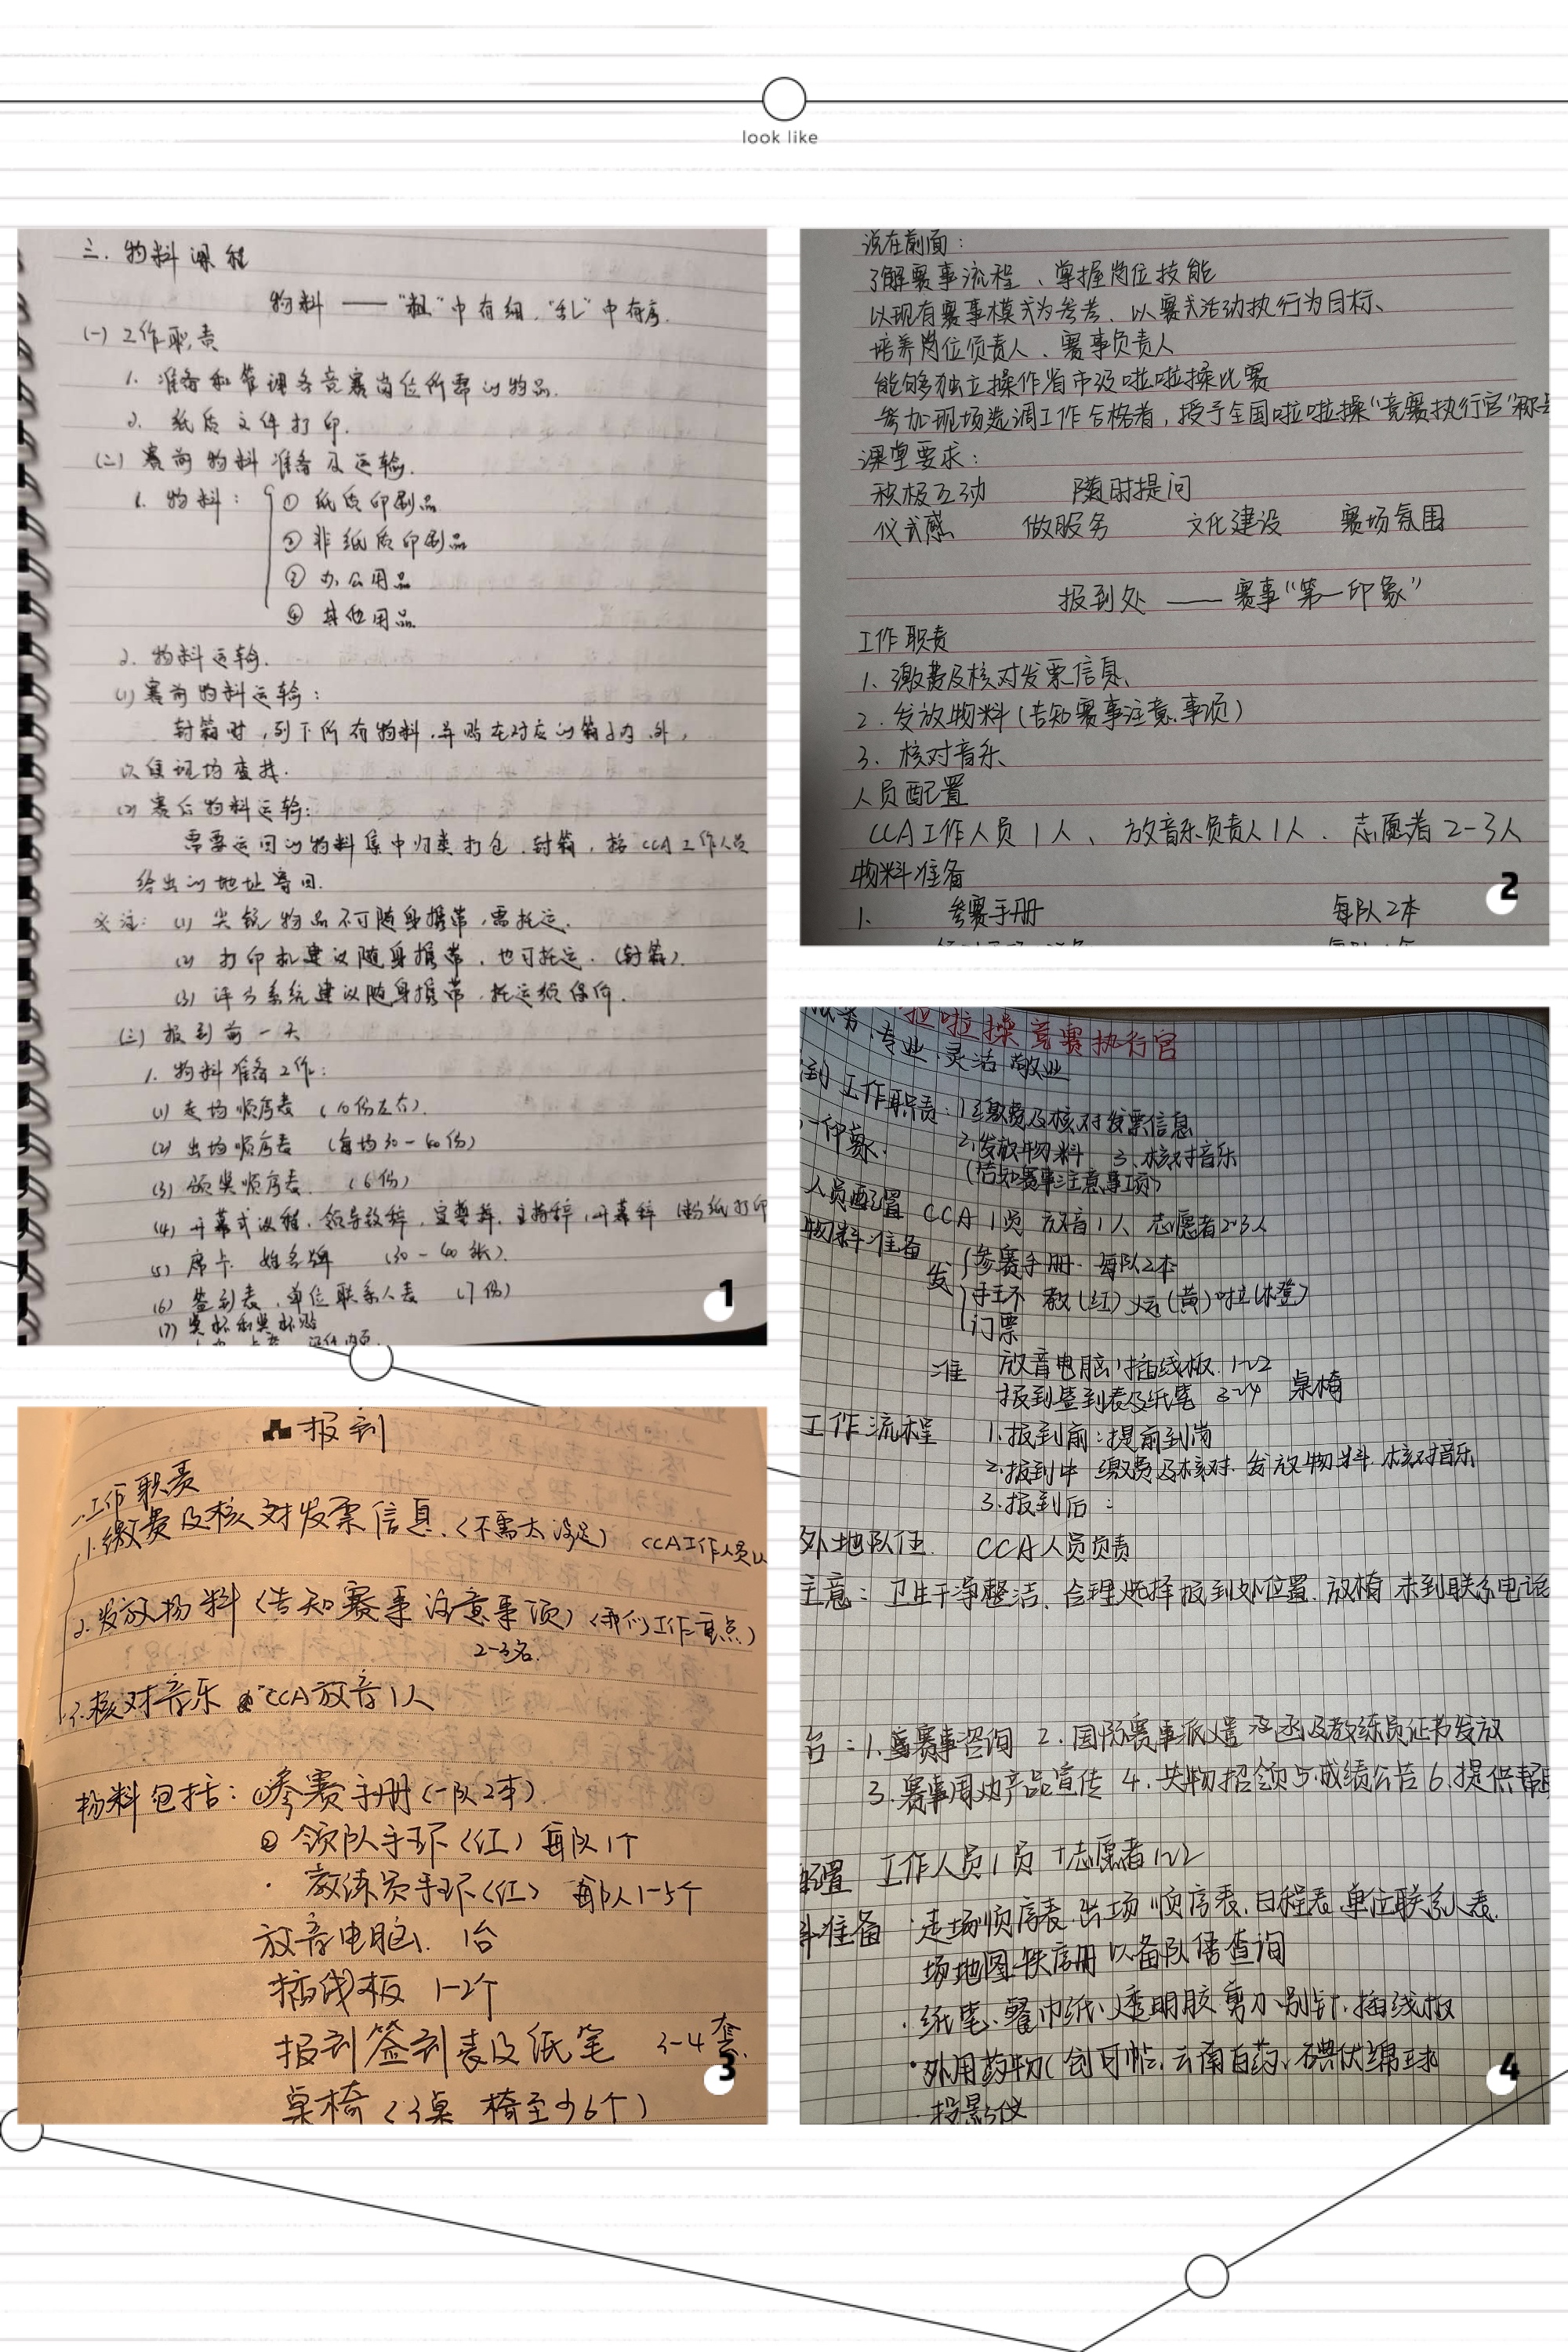 look like
三. 物料课程
物料 —— “粗”中有细, “乱”中有序.
(一) 工作职责
1. 准备和管理各竞赛岗位所需的物品.
2. 纸质文件打印.
(二) 赛前物料准备及运输.
1. 物料: ① 纸质印刷品
② 非纸质印刷品
③ 办公用品
④ 其他用品
2. 物料运输.
(1) 赛前物料运输:
封箱时, 列下所有物料, 并贴在对应的箱子内.外,
以便现场查找.
(2) 赛后物料运输:
需要运回的物料集中归类打包.封箱, 按CCA工作人员
给出的地址寄回.
备注: (1) 尖锐物品不可随身携带, 需托运.
(2) 打印机建议随身携带, 也可托运. (封箱).
(3) 评分系统建议随身携带, 托运须保价.
(三) 报到前一天
1. 物料准备工作:
(1) 走场顺序表 (10份左右).
(2) 出场顺序表 (每场30-40份)
(3) 颁奖顺序表. (6份)
(4) 开幕式议程, 领导致辞, 宣誓辞, 主持辞, 开幕辞 纸打印
(5) 席卡 姓名牌 (30-40张).
(6) 签到表, 单位联系人表 (7份)
(7) 奖杯和奖杯贴
1
说在前面:
了解赛事流程、掌握岗位技能
以现有赛事模式为参考、以赛式活动执行为目标、
培养岗位负责人、赛事负责人
能够独立操作省市级啦啦操比赛
参加现场选调工作合格者, 授予全国啦啦操“竞赛执行官”称号
课堂要求:
积极互动 随时提问
仪式感 做服务 文化建设 赛场氛围
报到处 —— 赛事“第一印象”
工作职责
1. 缴费及核对发票信息、
2. 发放物料(告知赛事注意.事项)
3. 核对音乐
人员配置
CCA工作人员1人、放音乐负责人1人. 志愿者2-3人
物料准备
1. 参赛手册 每队2本
2
报到
一.工作职责
1. 缴费及核对发票信息.(不需太涉足) CCA工作人员
2. 发放物料(告知赛事注意事项)(我们工作重点)
2-3名.
3. 核对音乐 CCA放音1人
物料包括: ①参赛手册(一队2本)
② 领队手环(红) 每队1个
· 教练员手环(红) 每队1-5个
放音电脑. 1台
插线板 1-2个
报到签到表及纸笔 3-4套.
桌椅(3桌 椅至少6个)
3
啦啦操竞赛执行官
专业、灵活 敬业
到 工作职责: 1.缴费及核对发票信息
一印象. 2.发放物料 3.核对音乐
(告知赛事注意事项)
人员配置 CCA 1员 放音1人 志愿者2~3人
物料准备 发 参赛手册. 每队2本
手环 教(红)
门票
准 放音电脑1 插线板. 1~2
报到签到表及纸笔 3~4 桌椅
工作流程 1.报到前: 提前到岗
2.报到中 缴费及核对. 发放物料. 核对音乐
3.报到后:
外地队伍. CCA人员负责
注意: 卫生干净整洁. 合理选择报到处位置. 放椅 未到联系电话
台: 1. 赛事咨询 2. 国际赛事派遣 函及教练员证书发放
3. 赛事周边产品宣传 4. 失物招领 5.成绩公告 6.提供帮助
配置 工作人员1员 + 志愿者1~2
料准备 · 走场顺序表. 出场顺序表. 日程表 单位联系人表.
场地图 秩序册 以备队伍查询
· 纸笔、餐巾纸、透明胶 剪刀 别针. 插线板
· 外用药物(创可帖. 云南白药. 碘伏绵球
· 投影仪
4